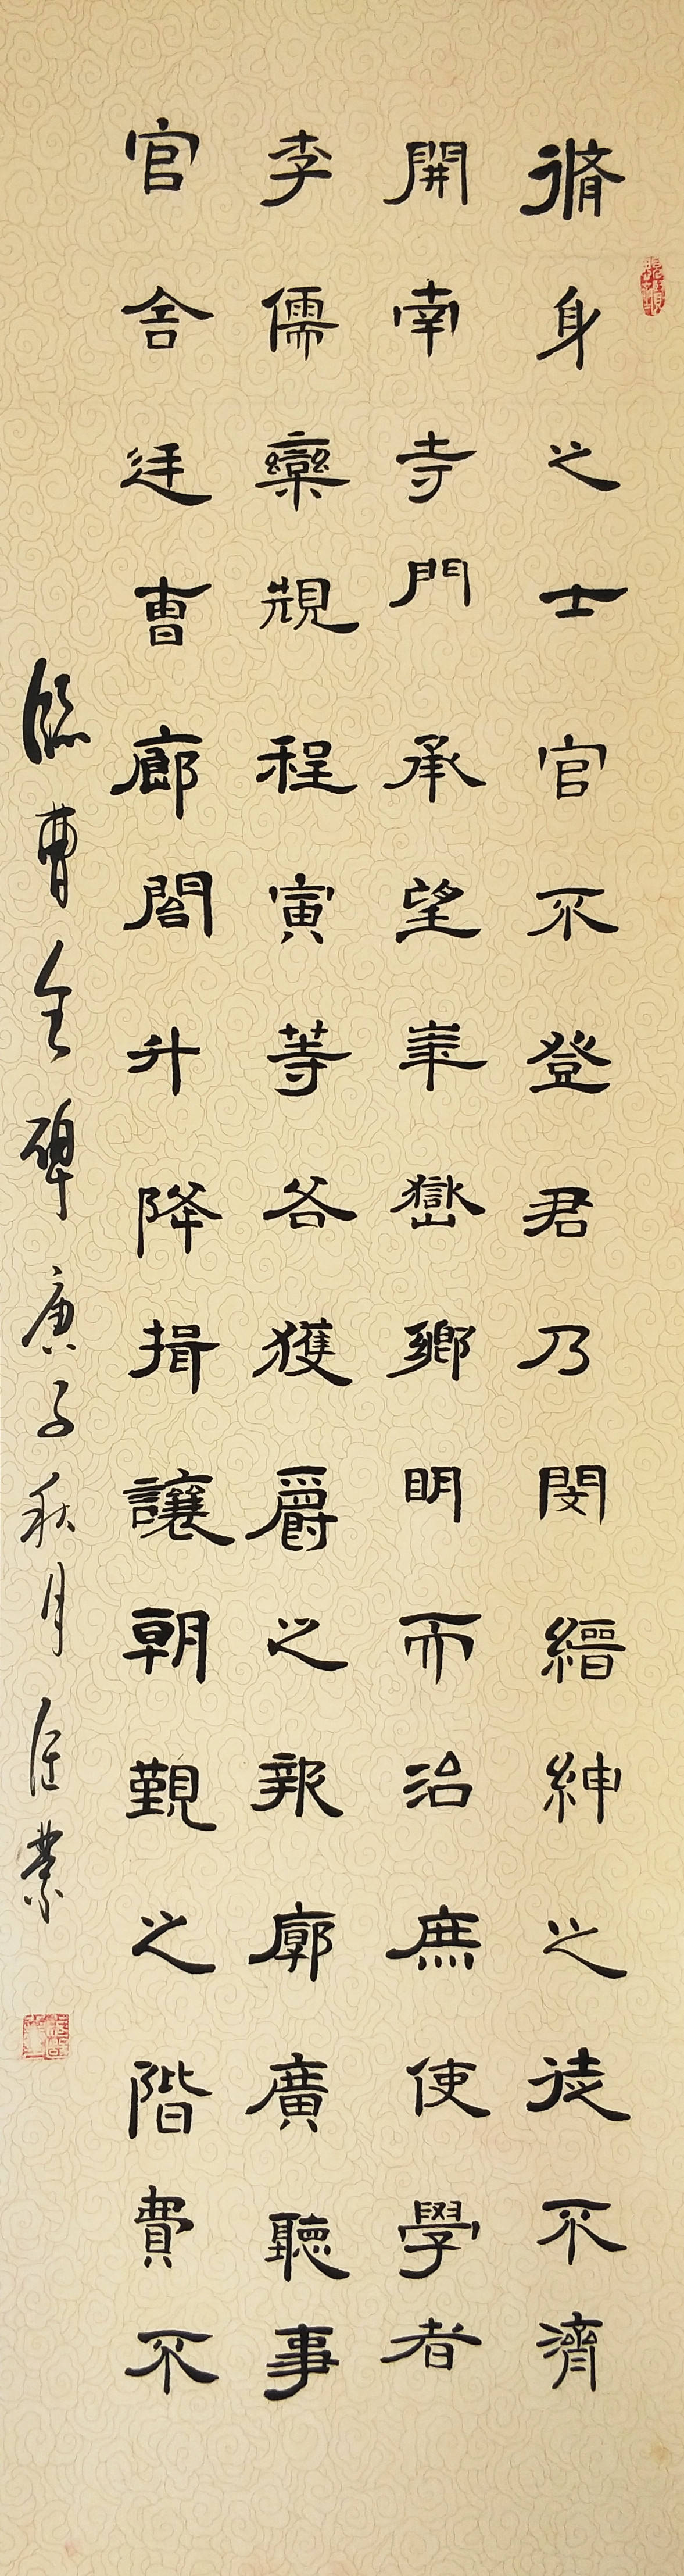 脩身之士官不登君乃閔縉紳之徒不濟
開南寺門承望華嶽鄉明而治庶使學者
李儒欒規程寅等各獲爵之報廓廣聽事
官舍廷曹廊閣升降揖讓朝覲之階費不
臨曹全碑庚子秋月